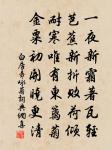 一夜新霜著瓦輕
芭蕉新折敗荷傾
耐寒唯有東籬菊
金粟初開曉更清
白居易詠菊詩